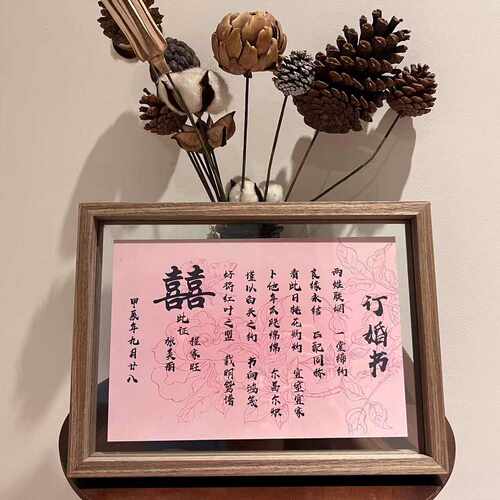 订婚书
两姓联姻 一堂缔约
良缘永结 匹配同称
看此日桃花灼灼 宜室宜家
卜他年瓜瓞绵绵 尔昌尔炽
谨以白头之约 书向鸿笺
好将红叶之盟 载明鸳谱
囍
此证
程家旺
美丽
甲辰年九月廿八